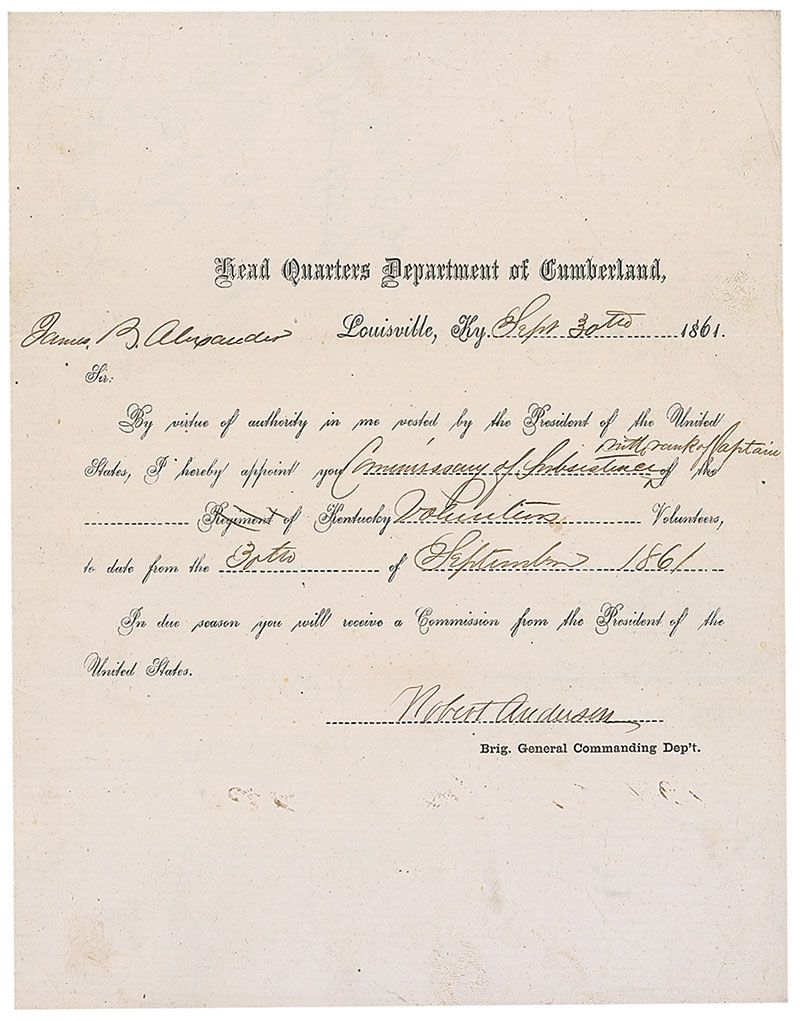 Head Quarters Department of Cumberland,
James B. Alexander Louisville, Ky. Sept 30th 1861.
Sir:
By virtue of authority in me vested by the President of the United
with rank of Captain
States, I hereby appoint you Commissary of Subsistence of the
Regiment of Kentucky Volunteers Volunteers,
to date from the 30th of September 1861
In due season you will receive a Commission from the President of the
United States.
Robert Anderson
Brig. General Commanding Dep't.